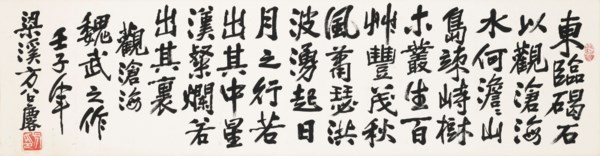 東臨碣石
以觀滄海
水何澹山
島竦峙樹
木叢生百
艸豐茂秋
風蕭瑟洪
波湧起日
月之行若
出其中星
漢粲爛若
出其裏
觀滄海
魏武之作
壬子年
梁溪方公麐